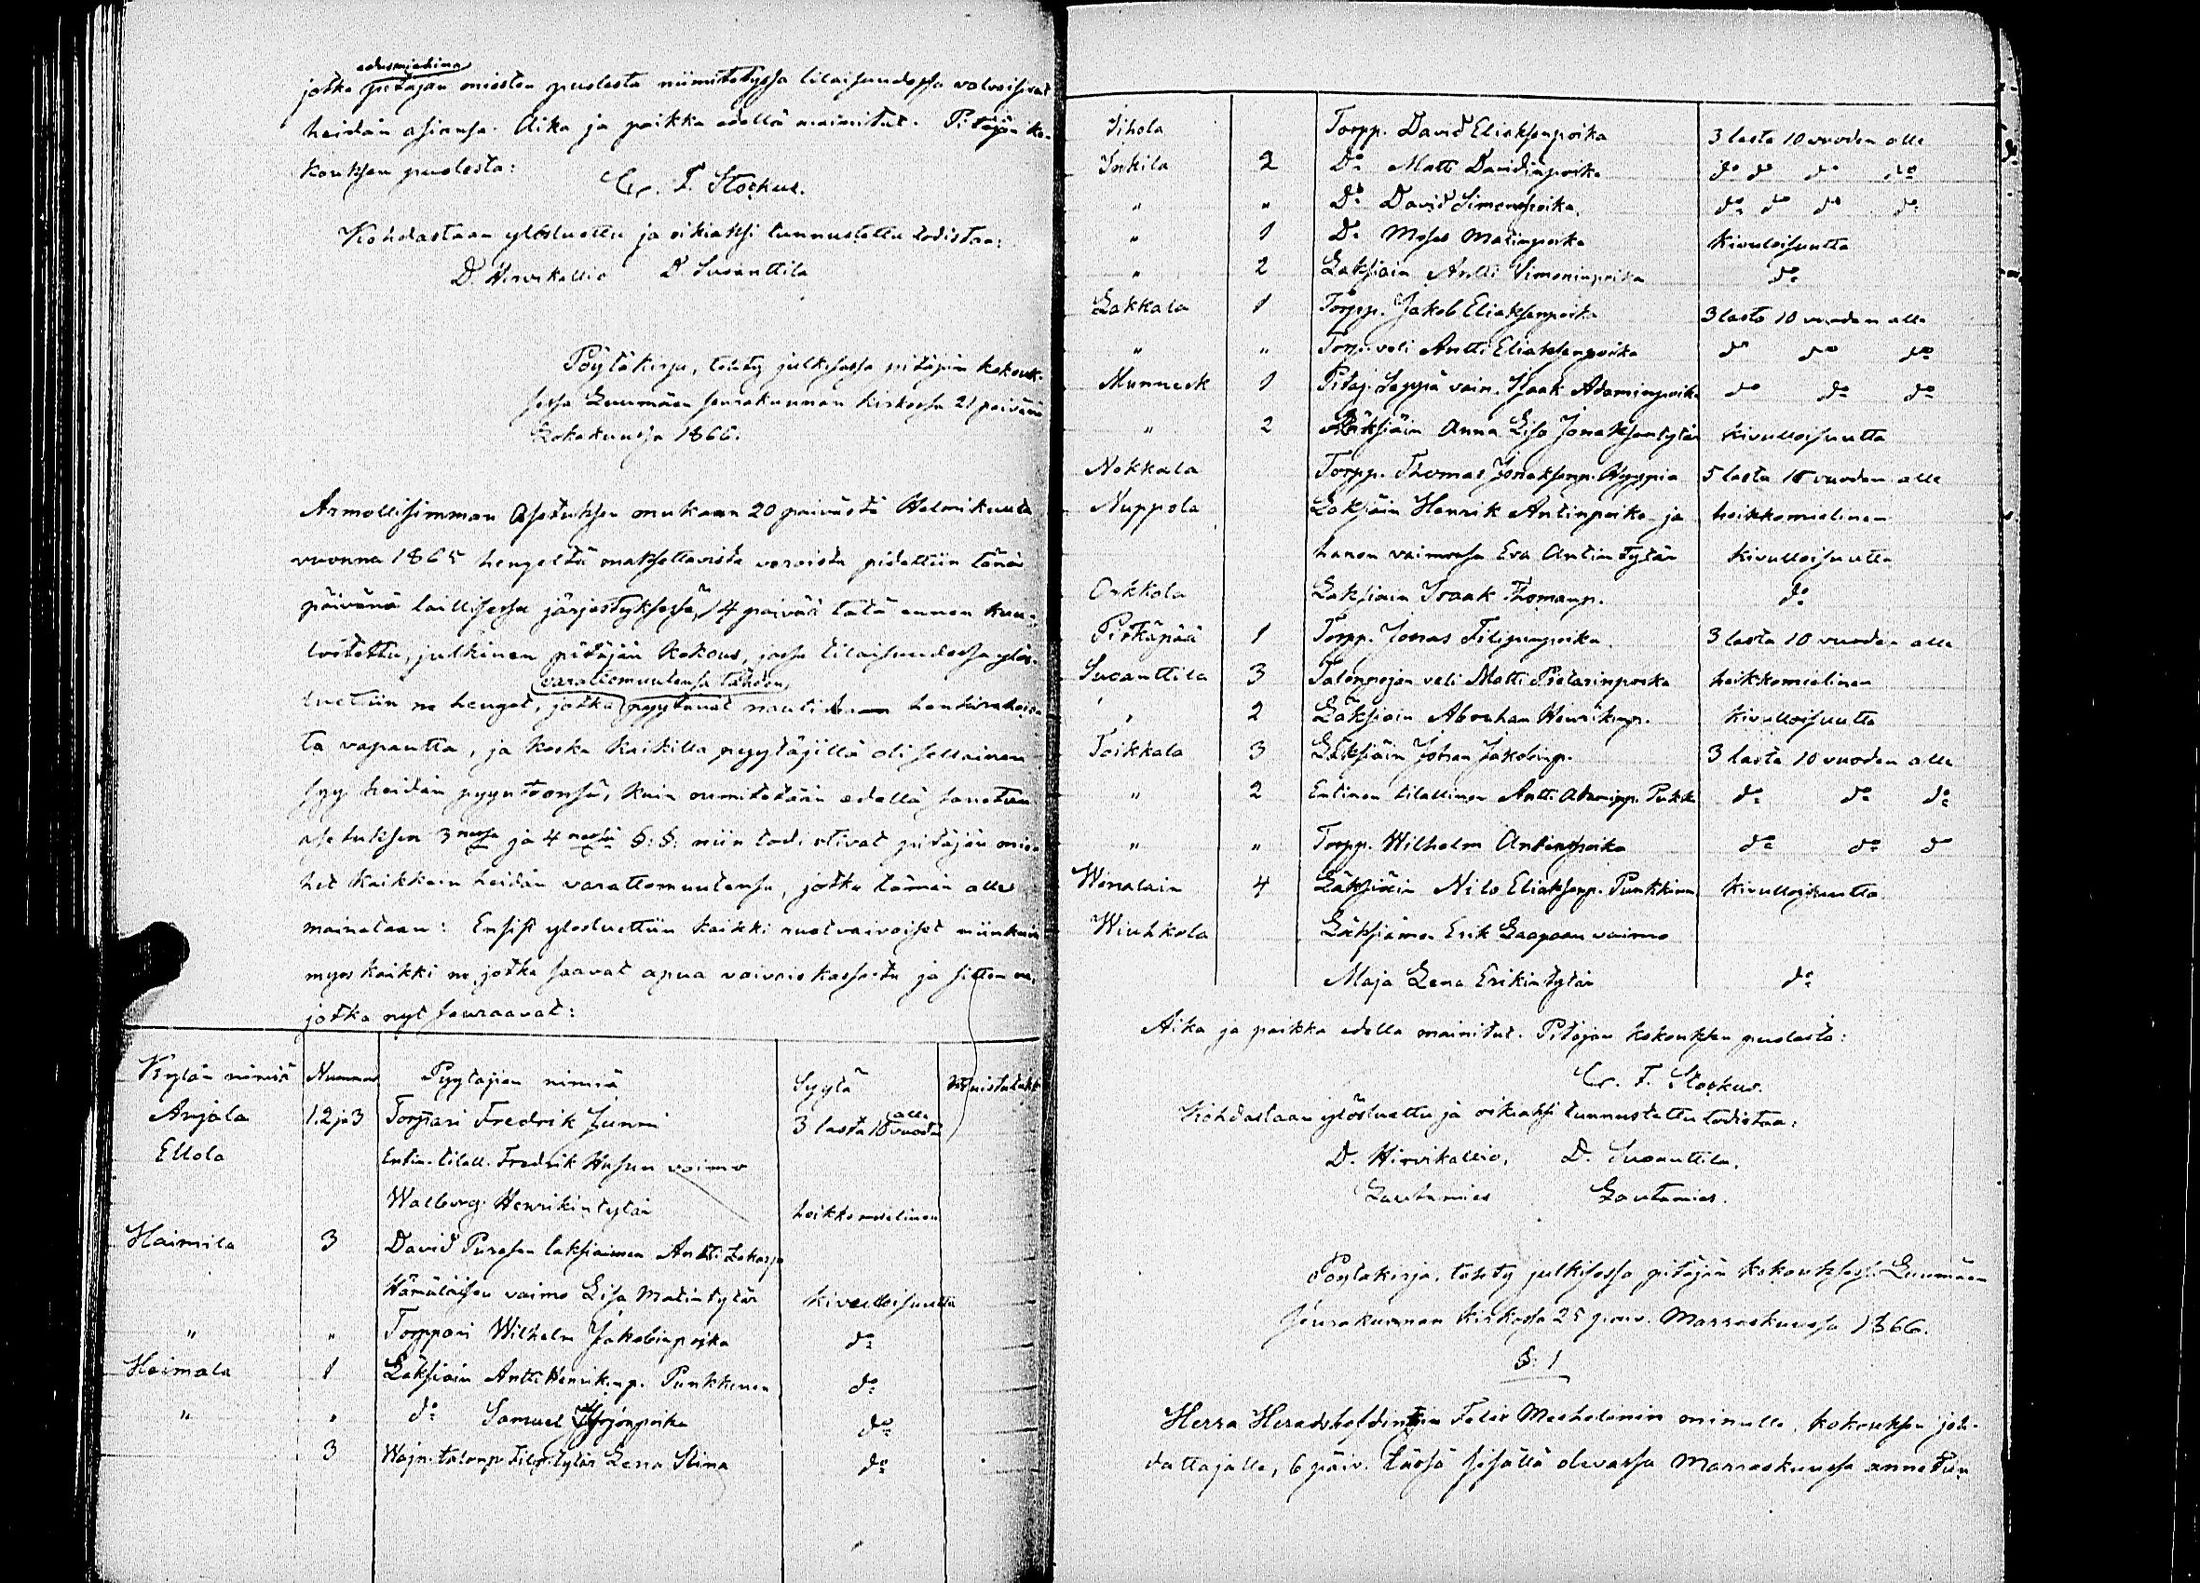 edusmiehinä
jotka pitäjän miesten puolesta nimitetyssä tilaisuudessa valvoisivat
heidän asiansa. Aika ja paikka edellä mainitut. Pitäjän ko-
kouksen puolesta:
C. F. Stockus.
Kohdastaan ylösluettu ja oikiaksi tunnustettu todistaa:
D. Hirvikallio D. Suoanttila
Pöytäkirja, tehty julkisessa pitäjän kokouk-
sessa Luumäen seurakunnan kirkossa 21 päivänä
Lokakuussa 1866.
Armollisimman Asetuksen mukaan 20 päivästä Helmikuuta
vuonna 1865 hengeltä maksettavista veroista pidettiin tänä
päivänä laillisessa järjestyksessä, 14 päivää tätä ennen kuu-
lutettu, julkinen pitäjän kokous, jossa tilaisuudessa ylös-
varattomuutensa tähden
luettiin ne henget, jotka pyytävät nautita henkirahois-
ta vapautta, ja koska kaikilla pyytäjillä oli sellainen
syy heidän pyyntöönsä, kuin nimitetään edellä sanotun
asetuksen 3nessa ja 4nessä §:§: niin todistivat pitäjän mie-
het kaikkein heidän varattomuutensa, jotka tämän alle
mainataan: Ensist ylosluettiin kaikki ruotvaivaiset niinkuin
myös kaikki ne, jotka saavat apua vaivais kassasta ja sitten ne,
jotka nyt seuraavat:
Kylän nimiä Nummer Pyytäjien nimiä Syytä Muistutuk.
Anjala 1.2 ja 3 Torppari Fredrik Junni 3 lasta 10 vuoden alle
Ellola Entin. tilall. Fredrik Husun vaimo
Walborg Henrikintytär heikkomielinen
Haimila 3 David Purasen läksiäimen Antti Zakarp.
Hämäläisen vaimo Lisa Matintytär kivulloisuutta
" " Torppari Wilhelm Jakobinpoika do
Heimala 1 Läksiäin Antti Henrikinp. Punkkinen do
" " do Samuel Yrjönpoika do
3 Wajn. talonp. tytär Lena Stina do
Iihola Torpp. David Eliaksenpoika 3 lasta 10 vuoden alle
Inkila 2 Do Matti Davidinpoika do do do do
" " Do David Simonpoika do do do do
" 1 Do Moses Matinpoika Kivuloisuutta
" 2 Läksiäin Antti Simoninpoika do
Lakkala 1 Torpp. Jakob Eliaksenpoika 3 lasta 10 vuoden alle
" " Torp. veli Antti Eliaksenpoika do do do
Munneck 1 Pitäj. Seppä vain. Isaak Adaminpoika do do do
" 2 Läksiäin Anna Lisa Jonaksentytär Kivulloisuutta
Nokkala Torpp. Thomas Jonaksenp. Hyyppiä 5 lasta 10 vuoden alle
Nuppola Läksiäin Henrik Antinpoika ja heikkomielinen
hänen vaimonsa Eva Antintytär Kivulloisuutta
Orkkola Läksiäin Isaak Thomanp. do
Pitkäpää 1 Torpp. Jonas Filipinpoika 3 lasta 10 vuoden alle
Suoanttila 3 Talonpojan veli Matti Pietarinpoika heikkomielinen
" 2 Läksiäin Abraham Henrikinp. Kivulloisuutta
Toikkala 3 Läksiäin Johan Jakobinp. 3 lasta 10 vuoden alle
" 2 Entinen tilallinen Antti Adaminp. Pukki do do do
" " Torpp. Wilhelm Antinpoika do do do
Wenälain 4 Läksiäin Nilo Eliaksenp. Punkkinen Kivulloisuutta
Wiuhkola Läksiämen Erik Laapaan vaimo
Maja Lena Erikintytär do
Aika ja paikka edellä mainitut. Pitäjän kokouksen puolesta:
C. F. Stockus.
Kohdastaan ylösluettu ja oikiaksi tunnustettu todistaa:
D. Hirvikallio, D. Suoanttila,
Lautamies Lautamies.
Pöytäkirja, tehty julkisessa pitäjän kokouksessa Luumäen
seurakunnan kirkossa 25 päiv. Marraskuussa 1866.
§: 1
Herra Heradshöfdingin Felix Mechelinin minulle, kokouksen joh-
dattajalle, 6 päiv. tässä sisällä olevassa Marraskuussa annetun